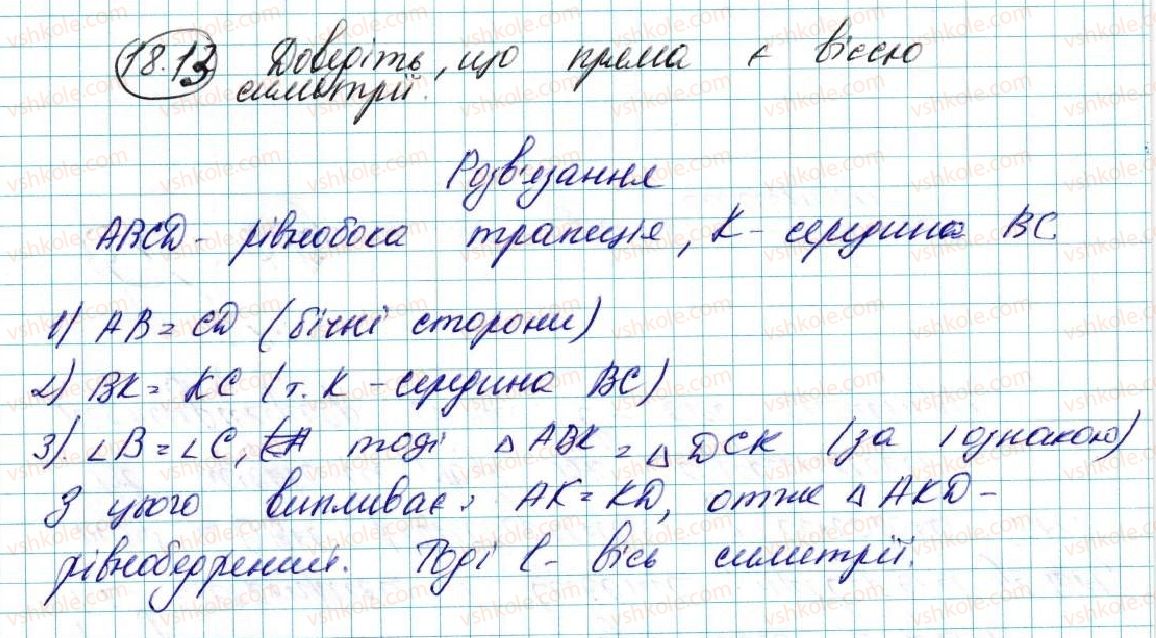 18.13 Доведіть, що пряма є віссю
симетрії.
Розв'язання
ABCD - рівнобока трапеція, K - середина BC
1) AB = CD (бічні сторони)
2) BK = KC (т. K - середина BC)
3) ∠B = ∠C, тоді △ABK = △DCK (за I ознакою)
З цього випливає: AK = KD, отже △AKD -
рівнобедрений. Тоді l - вісь симетрії.